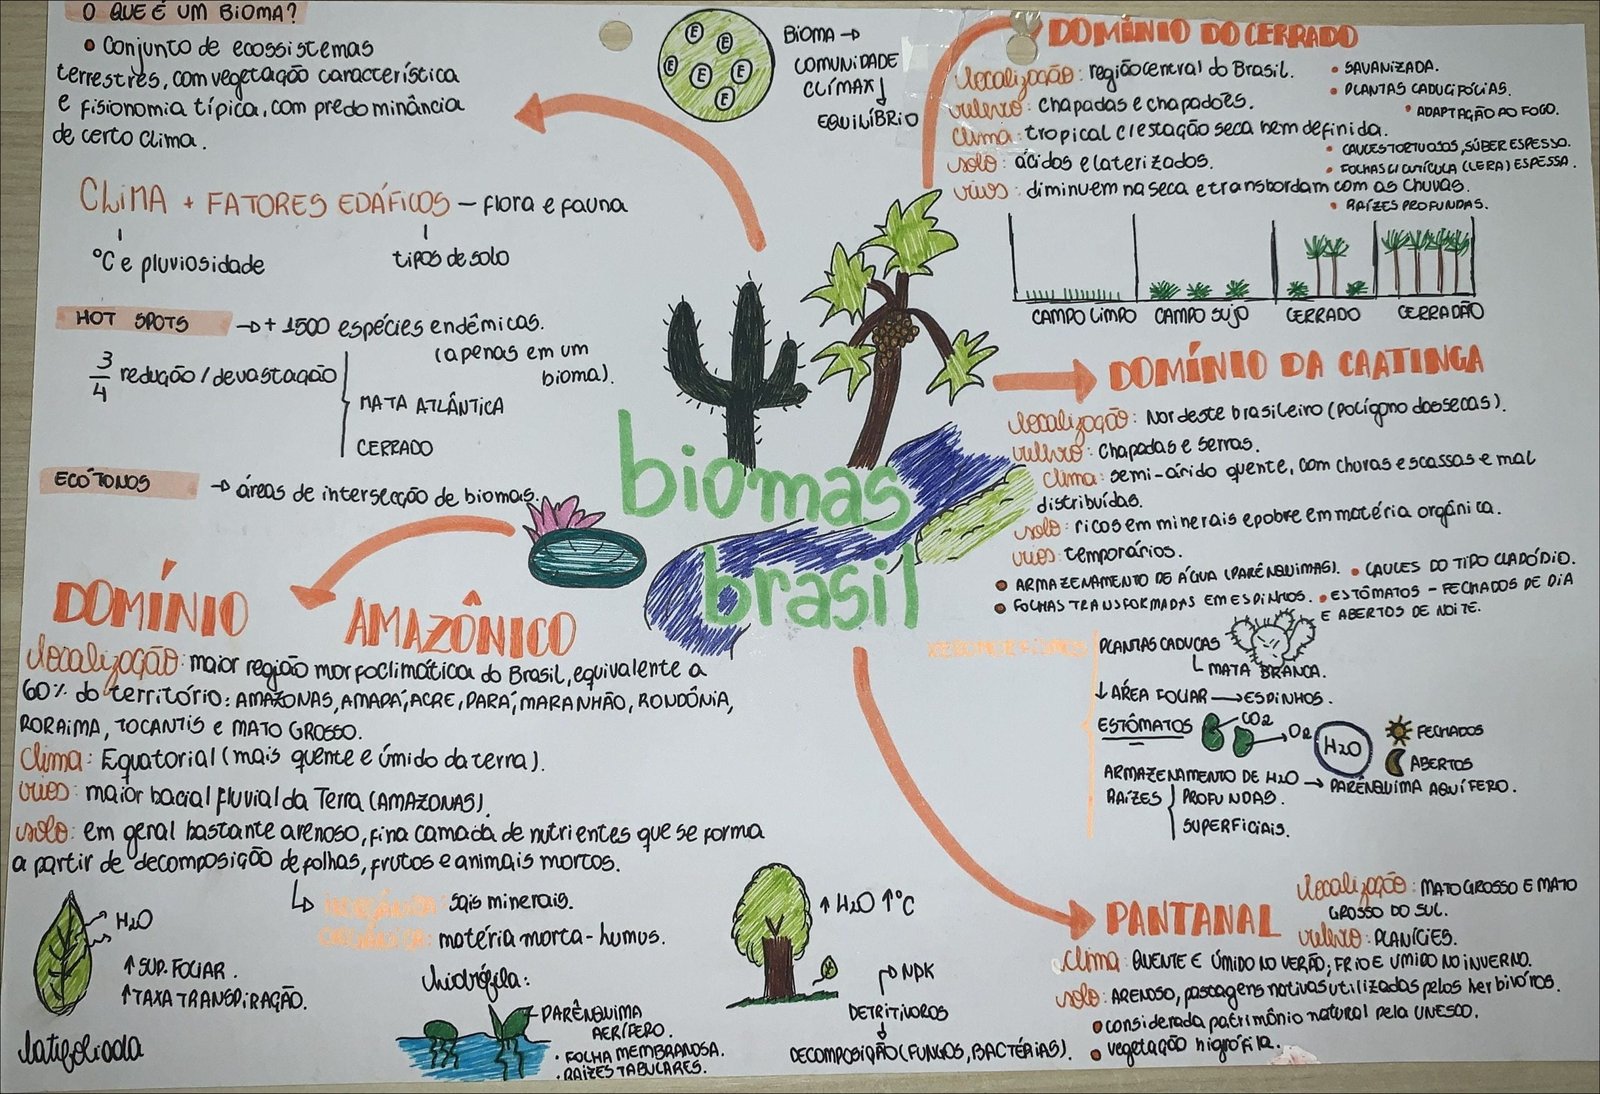 O QUE É UM BIOMA?
• Conjunto de ecossistemas
terrestres, com vegetação característica
e fisionomia típica, com predominância
de certo clima.
E E E E E E
BIOMA →
COMUNIDADE
CLÍMAX
EQUILÍBRIO
CLIMA + FATORES EDÁFICOS – flora e fauna
°C e pluviosidade
tipos de solo
HOT SPOTS → + 1500 espécies endêmicas.
(apenas em um
bioma).
3/4 redução/devastação
MATA ATLÂNTICA
CERRADO
ECÓTONOS → áreas de intersecção de biomas.
biomas
brasil
DOMÍNIO AMAZÔNICO
localização: maior região morfoclimática do Brasil, equivalente a
60% do território: AMAZONAS, AMAPÁ, ACRE, PARÁ, MARANHÃO, RONDÔNIA,
RORAIMA, TOCANTIS e MATO GROSSO.
clima: Equatorial (mais quente e úmido da terra).
rios: maior bacial fluvial da Terra (AMAZONAS).
solo: em geral bastante arenoso, fina camada de nutrientes que se forma
a partir de decomposição de folhas, frutos e animais mortos.
INORGÂNICA: sais minerais.
ORGÂNICA: matéria morta - humus.
H2O
↑ SUP. FOLIAR.
↑ TAXA TRANSPIRAÇÃO.
latifoliada
hidrófila:
PARÊNQUIMA
AERÍFERO.
• FOLHA MEMBRANOSA.
• RAÍZES TABULARES.
↑ H2O ↑°C
NPK
DETRITIVOROS
DECOMPOSIÇÃO (FUNGOS, BACTÉRIAS).
DOMÍNIO DO CERRADO
localização: região central do Brasil.
relevo: chapadas e chapadões.
clima: tropical c/ estação seca bem definida.
solo: ácidos e laterizados.
rios: diminuem na seca e transbordam com as chuvas.
• SAVANIZADA.
• PLANTAS CADUCIFÓLIAS.
• ADAPTAÇÃO AO FOGO.
• CAULES TORTUOSOS, SÚBER ESPESSO.
• FOLHAS C/ CUTÍCULA (CERA) ESPESSA.
• RAÍZES PROFUNDAS.
CAMPO LIMPO CAMPO SUJO CERRADO CERRADÃO
DOMÍNIO DA CAATINGA
localização: Nordeste brasileiro (polígono das secas).
relevo: chapadas e serras.
clima: semi-árido quente, com chuvas escassas e mal
distribuídas.
solo: ricos em minerais e pobre em matéria orgânica.
rios: temporários.
• ARMAZENAMENTO DE ÁGUA (PARÊNQUIMAS). • CAULES DO TIPO CLADÓDIO.
• FOLHAS TRANSFORMADAS EM ESPINHOS. • ESTÔMATOS – FECHADOS DE DIA
E ABERTOS DE NOITE.
PLANTAS CADUCAS
MATA BRANCA.
↓ ÁREA FOLIAR → ESPINHOS.
ESTÔMATOS CO2 → O2 H2O FECHADOS
ABERTOS
ARMAZENAMENTO DE H2O → PARÊNQUIMA AQUÍFERO.
RAÍZES PROFUNDAS.
SUPERFICIAIS.
PANTANAL
localização: MATO GROSSO E MATO
GROSSO DO SUL.
relevo: PLANÍCIES.
clima: QUENTE E ÚMIDO NO VERÃO, FRIO E UMIDO NO INVERNO.
solo: ARENOSO, pastagens nativas utilizados pelos herbívoros.
• considerada patrimônio natural pela UNESCO.
• vegetação higrófila.